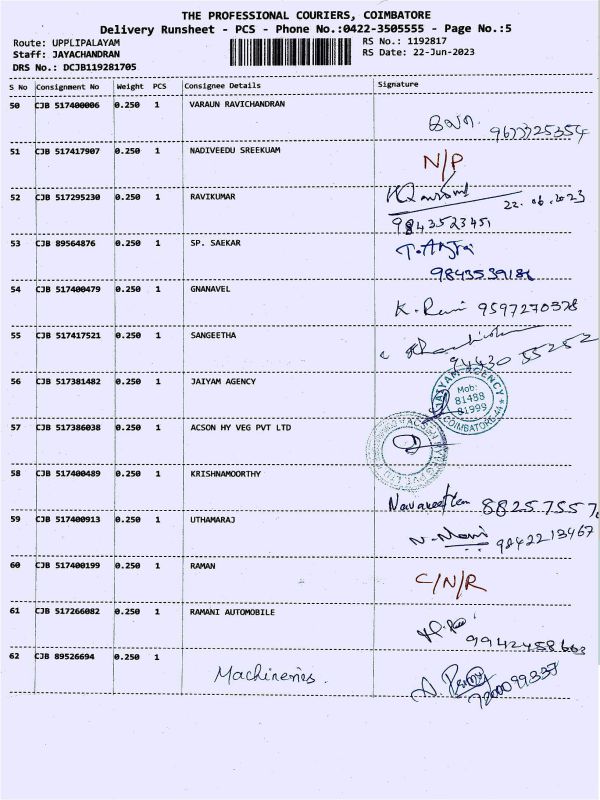 THE PROFESSIONAL COURIERS, COIMBATORE
Delivery Runsheet - PCS - Phone No.:0422-3505555 - Page No.:5
Route: UPPLIPALAYAM
Staff: JAYACHANDRAN
DRS No.: DCJB119281705
RS No.: 1192817
RS Date: 22-Jun-2023
S No Consignment No Weight PCS Consignee Details Signature
50 CJB 517400006 0.250 1 VARAUN RAVICHANDRAN
9677725354
51 CJB 517417907 0.250 1 NADIVEEDU SREEKUAM N/P
52 CJB 517295230 0.250 1 RAVIKUMAR
22.06.2023
9843523451
53 CJB 89564876 0.250 1 SP. SAEKAR
9843539186
54 CJB 517400479 0.250 1 GNANAVEL
K. Ravi 9597270378
55 CJB 517417521 0.250 1 SANGEETHA
94430 55252
56 CJB 517381482 0.250 1 JAIYAM AGENCY
JAIYAM AGENCY
Mob:
81488
81999
COIMBATORE-44
57 CJB 517386038 0.250 1 ACSON HY VEG PVT LTD
58 CJB 517400489 0.250 1 KRISHNAMOORTHY
Navaneethan 88257557
59 CJB 517400913 0.250 1 UTHAMARAJ
N. Mani 9842213467
60 CJB 517400199 0.250 1 RAMAN C/N/R
61 CJB 517266082 0.250 1 RAMANI AUTOMOBILE
9942458663
62 CJB 89526694 0.250 1 Machineries.